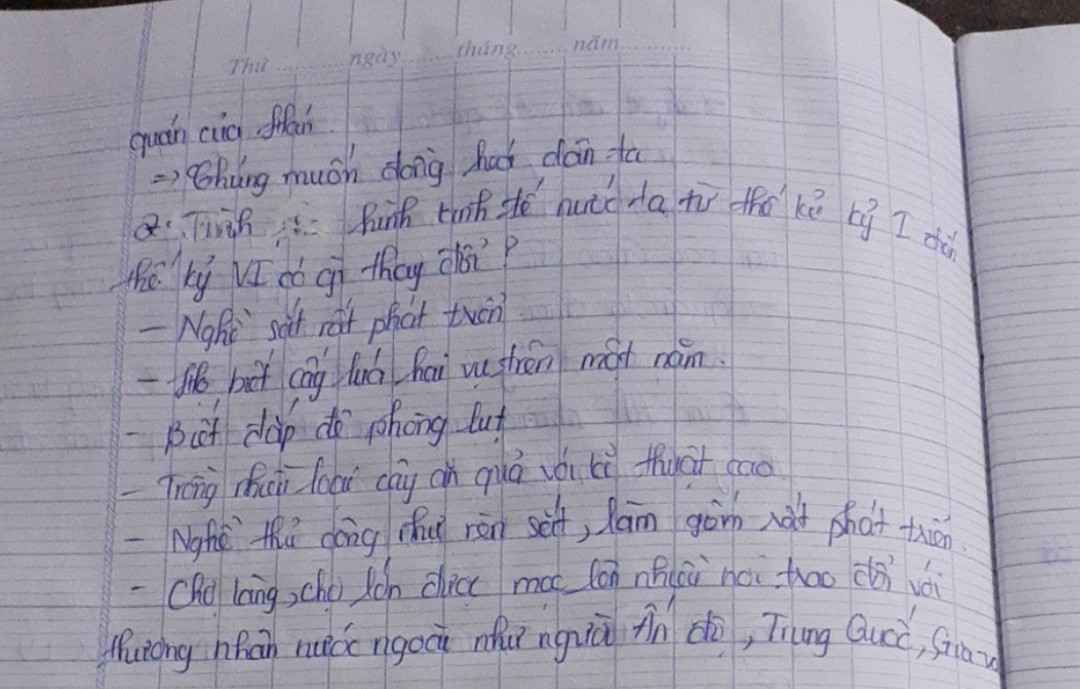 Thứ ........ ngày ...... tháng ........ năm ............
quán của Hán.
=> Chúng muốn đồng hoá dân ta
2: Tình hình kinh tế nước ta từ thế kỉ kỷ I đến
thế kỷ VI có gì thay đổi?
- Nghề sắt rất phát triển
- biết cấy lúa hai vụ trên một năm.
- Biết đắp đê phòng lụt
- Trồng nhiều loại cây ăn quả với kĩ thuật cao
- Nghề thủ công như rèn sắt, làm gốm rất phát triển.
- Chợ làng, chợ lớn được mọc lên nhiều nơi trao đổi với
thương nhân nước ngoài như người Ấn độ, Trung Quốc,